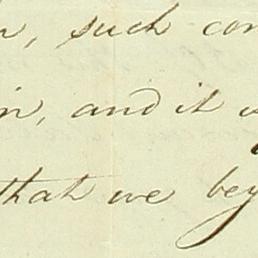 , such con
in, and it i
that we bey